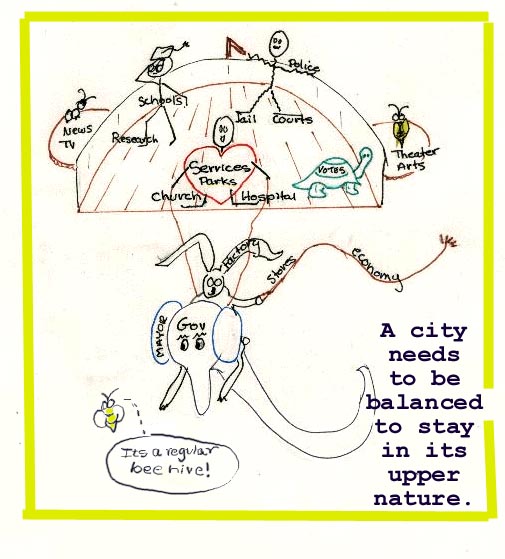 Police
Schools
News
TV
Research
Jail
Courts
Theater
Arts
Services
Parks
VOTES
Church
Hospital
Factory
Stores
economy
MAYOR
Gov
A city
needs
to be
balanced
to stay
in its
upper
nature.
Its a regular
bee hive!